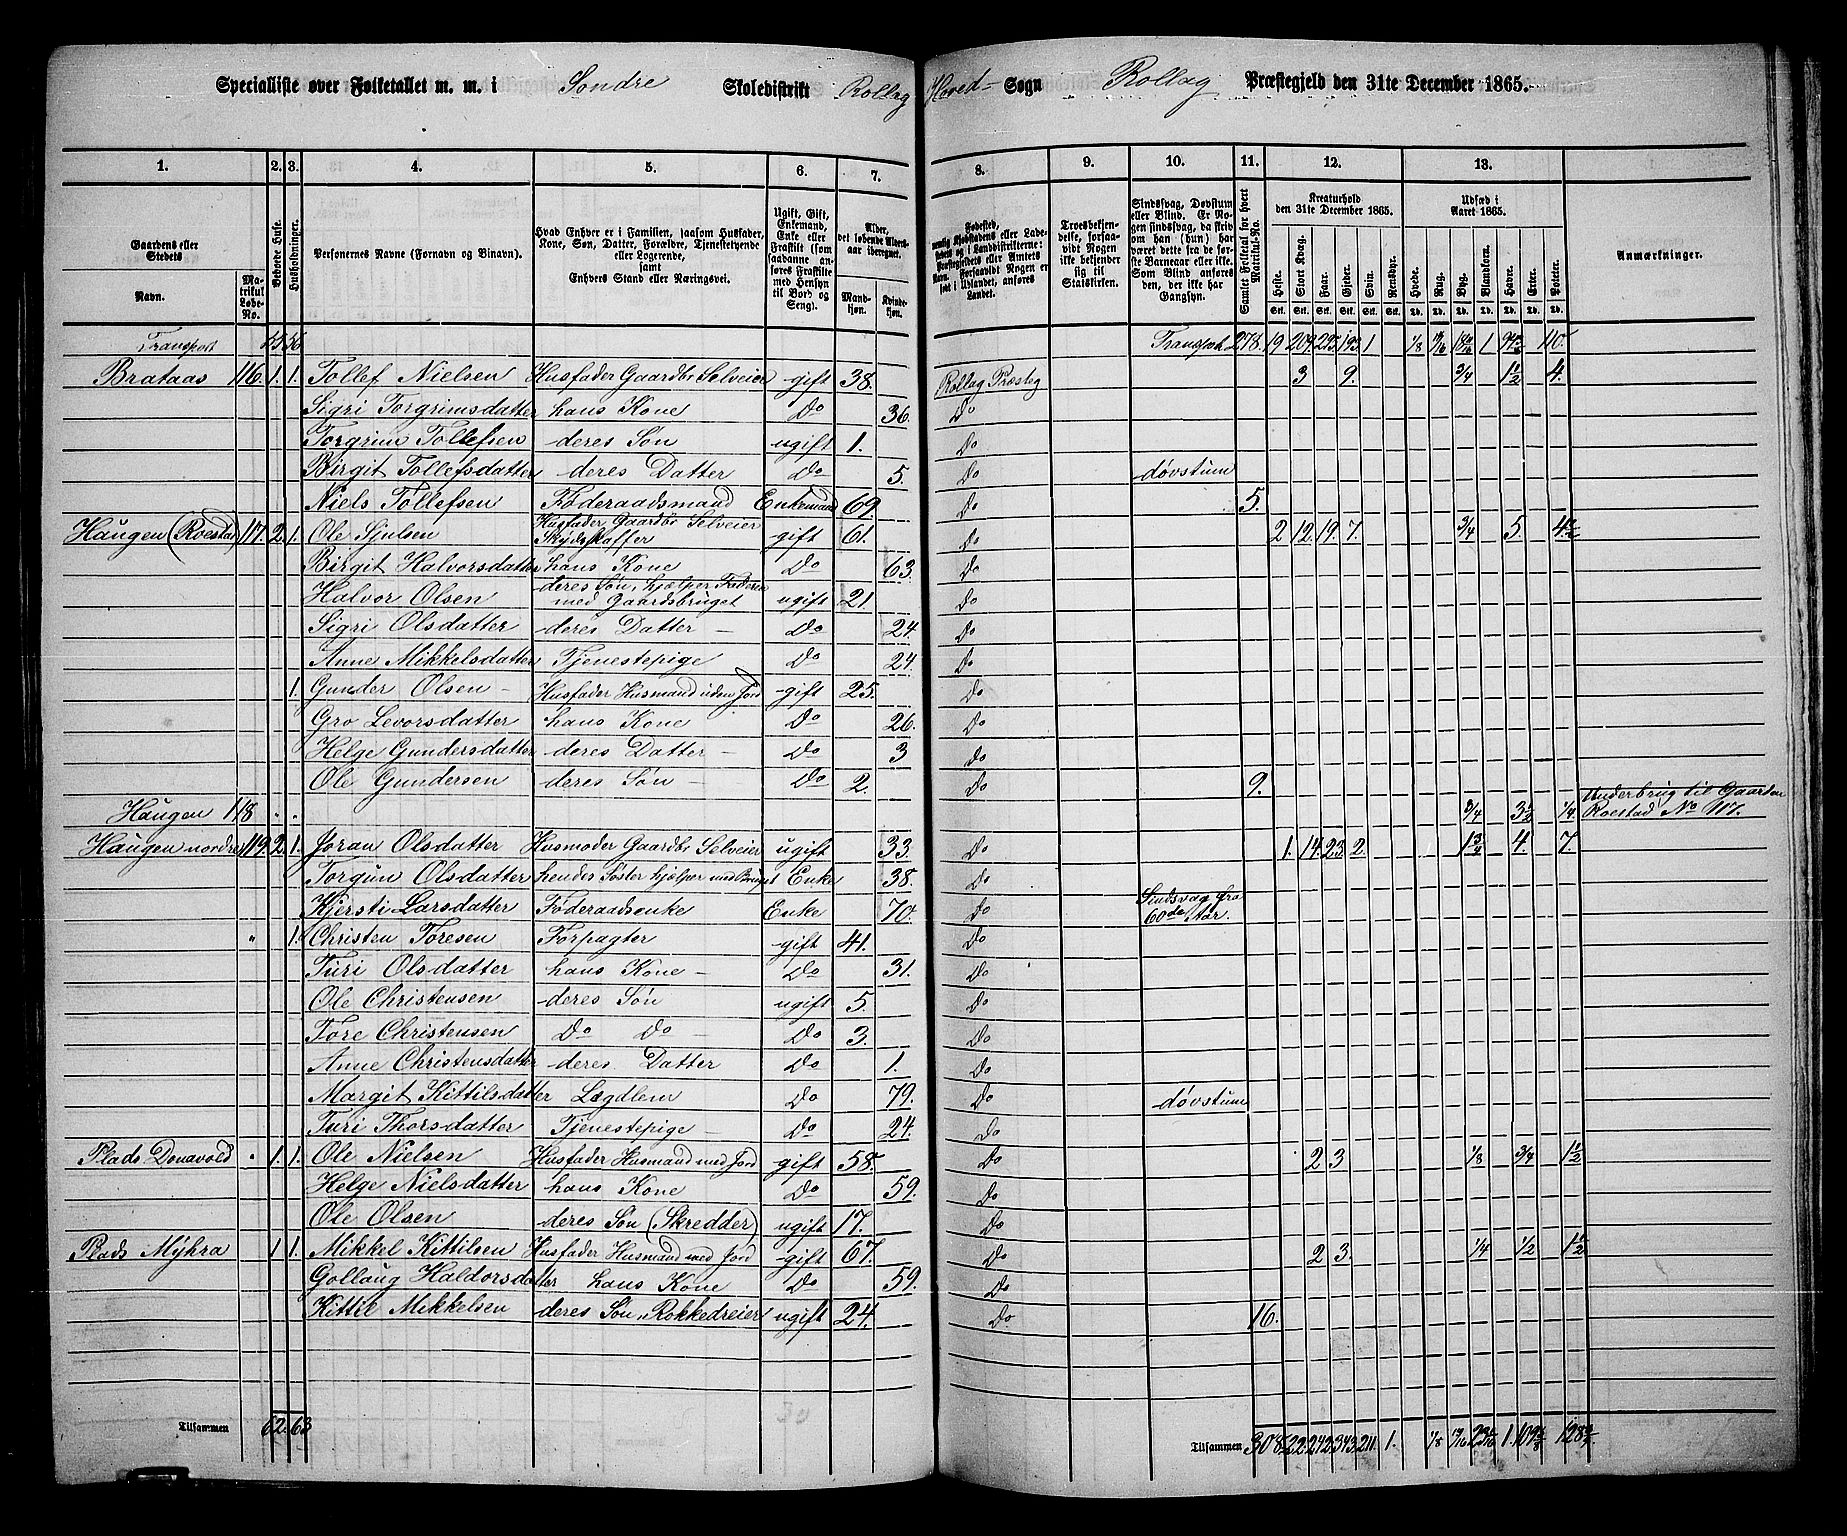 Specialliste over Folketallet m. m. i Søndre Skoledistrikt Rollag Hoved- Sogn Rollag Præstegjeld den 31te December 1865.
1. 2. 3. 4. 5. 6. 7. 8. 9. 10. 11. 12. 13.
Gaardens eller Stedets Navn. Matrikul Løbe-No. Beboede Huse. Husholdninger. Personernes Navne (Fornavn og Binavn). Hvad Enhver er i Familien, saasom Husfader, Kone, Søn, Datter, Forældre, Tjenestetyende eller Logerende, samt Enhvers Stand eller Næringsvei. Ugift, Gift, Enkemand, Enke eller Fraskilt (saadanne anføres Fraskilte med Hensyn til Bord og Seng). Alder, det løbende Alders-aar iberegnet. Mandkjøn. Kvindekjøn.
Troesbekjendelse, forsaavidt Nogen ikke bekjender sig til Statskirken. Sindssvag, Døvstum eller Blind. Er Nogen sindssvag, da skrives om han (hun) har været dette fra de første Barneaar eller ikke. Som Blind anføres den, der ikke har Gangsyn. Samlet Folketal for hvert Matrikul-No. Kreaturhold den 31te December 1865. Udsæd i Aaret 1865. Anmærkninger.
Heste. Stort Kvæg. Faar. Gjeder. Svin. Rensdyr. Hvede. Rug. Byg. Blandkorn. Havre. Erter. Poteter.
Transport 55 56 Transport 278. 19 209. 295. 193. 1 1/8 1
Brataas 116. 1. 1. Tollef Nielsen Husfader Gaardbr Selveier gift 38. Rollag Præsteg 3 9. 3/4 1 1/2 4.
Sigri Torgrimsdatter hans Kone Do 36. Do
Torgrim Tollefsen deres Søn ugift 1. Do
Birgit Tollefsdatter deres Datter Do 5. Do døvstum
Niels Tollefsen Føderaadsmand Enkemand 69 Do 5.
Haugen (Roestad) 117. 2. 1. Ole Sjulsen Husfader Gaardbr Selveier Skydsskaffer gift 61. Do 2 12. 19. 7. 3/4 5. 4 1/2
Birgit Halvorsdatter hans Kone Do 63. Do
Halvor Olsen deres Søn, hjælper Faderen med Gaardsbruget ugift 21. Do
Sigri Olsdatter deres Datter – Do 24. Do
Anne Mikkelsdatter Tjenestepige Do 24. Do
1. Gunder Olsen – Husfader Husmand uden Jord gift 25. Do
Gro Levorsdatter hans Kone Do 26. Do
Helge Gundersdatter deres Datter – Do 3 Do
Ole Gundersen deres Søn – Do 2. Do 9.
Haugen 118 3/4 3 1/2 1/4 Underbrug til Gaarden Roestad No 117.
Haugen nordre 119. 2. 1. Joran Olsdatter Husmoder Gaardbr Selveier ugift 33. Do 1. 14. 23. 2. 1 3/4 4. 7.
Torgun Olsdatter hendes Søster hjælper med Bruget Enke 38. Do
Kjersti Larsdatter Føderaadsenke Enke 70. Do Sindsvag fra 60de Aar.
" 1. Christen Toresen Forpagter gift 41. Do
Turi Olsdatter hans Kone – Do 31. Do
Ole Christensen deres Søn ugift 5. Do
Tore Christensen Do Do – Do 3. Do
Anne Christensdatter deres Datter Do 1. Do
Margit Kittilsdatter Lægdlem Do 79. Do døvstum
Turi Thorsdatter Tjenestepige – Do 24. Do
Plads Donavold " 1. 1. Ole Nielsen Husfader Husmand med Jord gift 58. Do 2 3 1/8 3/4 1 1/2
Helge Nielsdatter hans Kone Do 59. Do
Ole Olsen deres Søn (Skredder) ugift 17. Do
Plads Myhra 1 1. Mikkel Kittilsen Husfader Husmand med Jord gift 67. Do 2 3. 1/4 1/2 1 1/2
Gollaug Haldorsdatter hans Kone Do 59. Do
Kittil Mikkelsen deres Søn, Rokkedreier ugift 24. Do 16.
Tilsammen 62. 63 Tilsammen 308. 22. 242. 343. 211. 1. 1/8